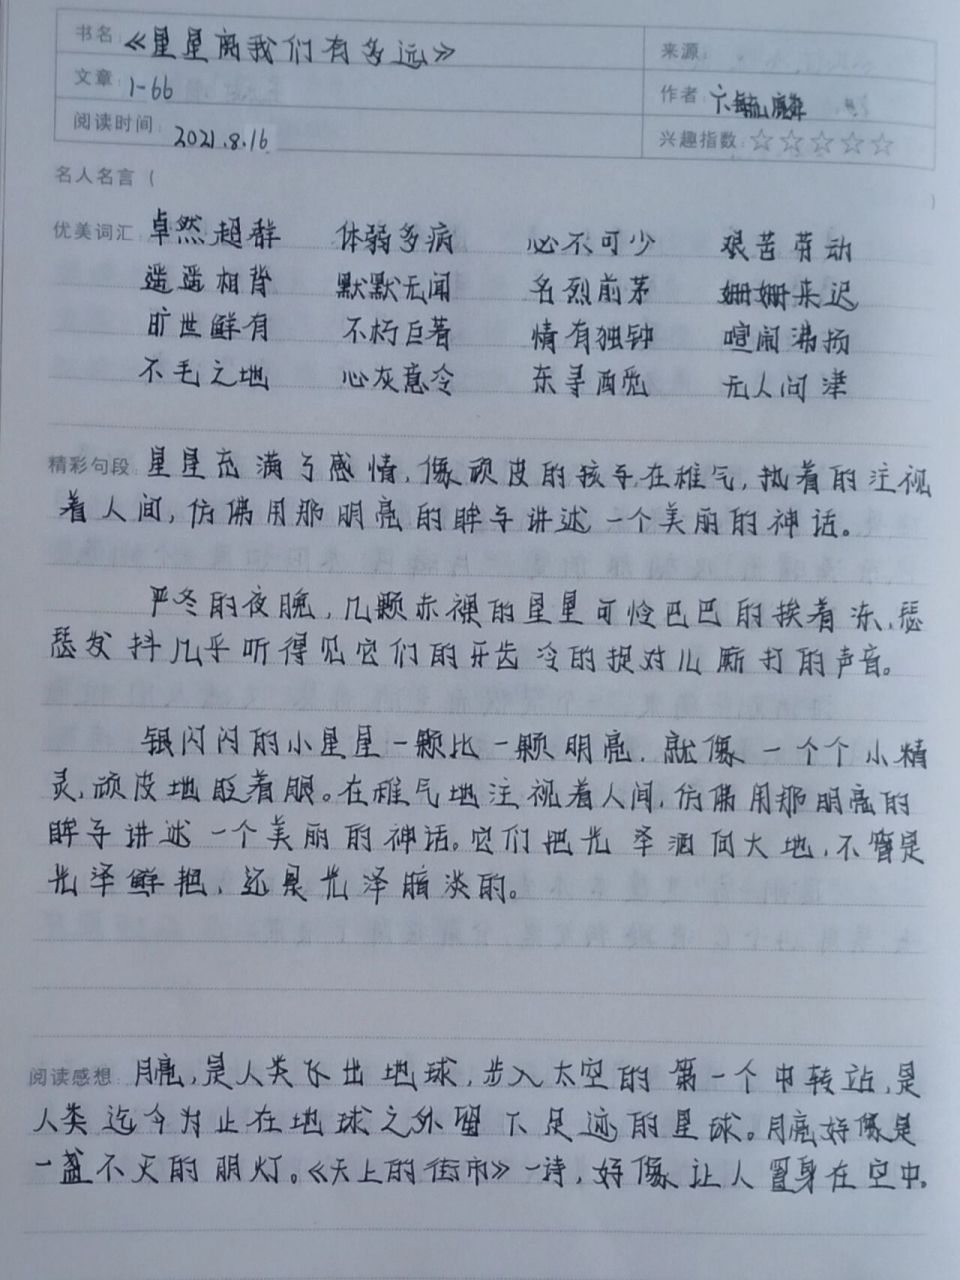 书名:《星星离我们有多远》
来源:
文章:1-66
作者:卞毓麟
阅读时间:2021.8.16
兴趣指数:☆☆☆☆☆
名人名言( )
优美词汇:卓然超群 体弱多病 必不可少 艰苦劳动
遥遥相背 默默无闻 名列前茅 姗姗来迟
旷世鲜有 不朽巨著 情有独钟 喧闹沸扬
不毛之地 心灰意冷 东寻西觅 无人问津
精彩句段:星星充满了感情,像顽皮的孩子,在稚气,执着的注视
着人间,仿佛用那明亮的眸子讲述一个美丽的神话。
严冬的夜晚,几颗赤裸的星星可怜巴巴的挨着冻,瑟
瑟发抖几乎听得见它们的牙齿冷的捉对儿厮打的声音。
银闪闪的小星星一颗比一颗明亮,就像一个个小精
灵,顽皮地眨着眼。在稚气地注视着人间,仿佛用那明亮的
眸子讲述一个美丽的神话。它们把光泽洒向大地,不管是
光泽鲜艳,还是光泽暗淡的。
阅读感想:月亮,是人类飞出地球,步入太空的第一个中转站,是
人类迄今为止在地球之外留下足迹的星球。月亮好像是
一盏不灭的明灯。《天上的街市》一诗,好像让人置身在空中。